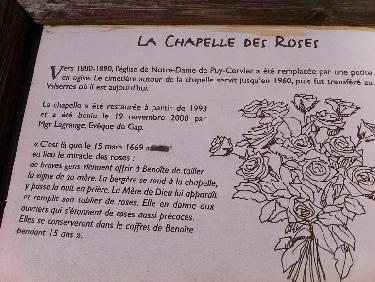 LA CHAPELLE DES ROSES
Vers 1880-1890, l'église de Notre-Dame de Puy-Cervier a été remplacée par une petite
en ogive. Le cimetière autour de la chapelle servit jusqu'en 1960, puis fut transféré au
où il est aujourd'hui.
La chapelle a été restaurée à partir de 1993
et a été bénie le 19 novembre 2000 par
Mgr Lagrange, Evêque de Gap.
« C'est là que le 15 mars 1669 a
eu lieu le miracle des roses :
de braves gens viennent offrir à Benoîte de tailler
la vigne de sa mère. La bergère se rend à la chapelle,
y passe la nuit en prière. La Mère de Dieu lui apparaît
et remplit son tablier de roses. Elle en donne aux
ouvriers qui s'étonnent de roses aussi précoces.
Elles se conserveront dans le coffret de Benoîte
pendant 15 ans ».